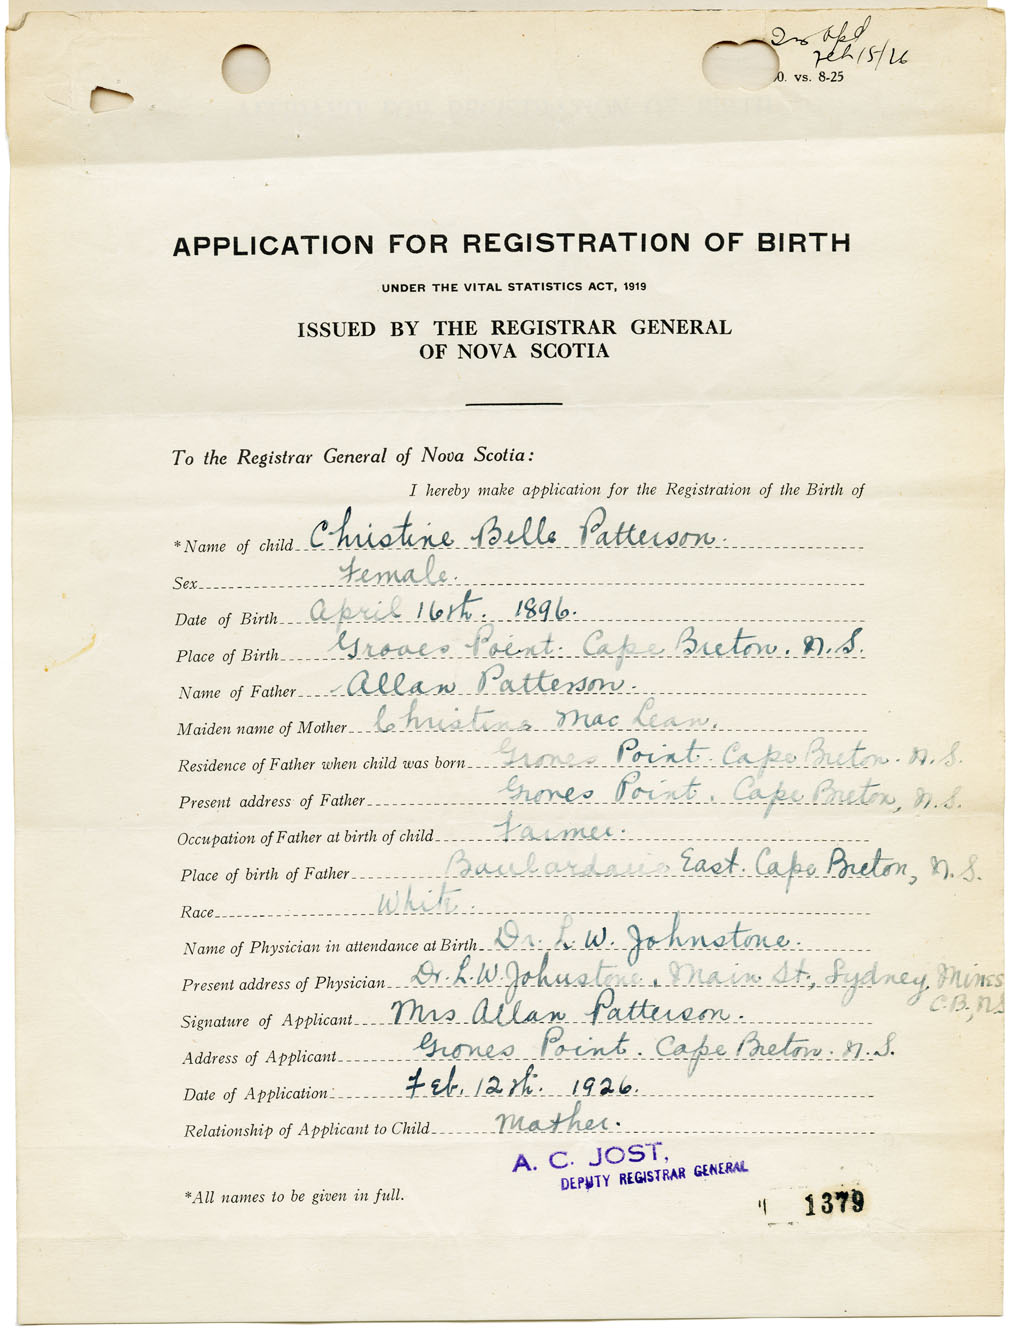 Feb 15/26
0. vs. 8-25
APPLICATION FOR REGISTRATION OF BIRTH
UNDER THE VITAL STATISTICS ACT, 1919
ISSUED BY THE REGISTRAR GENERAL
OF NOVA SCOTIA
To the Registrar General of Nova Scotia:
I hereby make application for the Registration of the Birth of
*Name of child Christine Belle Patterson.
Sex Female.
Date of Birth April 16th. 1896.
Place of Birth Groves Point. Cape Breton. N.S.
Name of Father Allan Patterson.
Maiden name of Mother Christine MacLean.
Residence of Father when child was born Groves Point. Cape Breton. N.S.
Present address of Father Groves Point. Cape Breton, N.S.
Occupation of Father at birth of child Farmer.
Place of birth of Father Boulardarie East. Cape Breton, N.S.
Race White.
Name of Physician in attendance at Birth Dr. L. W. Johnstone.
Present address of Physician Dr. L. W. Johnstone, Main St., Sydney Mines
C.B., N.S
Signature of Applicant Mrs Allan Patterson.
Address of Applicant Groves Point. Cape Breton. N.S.
Date of Application: Feb. 12th. 1926.
Relationship of Applicant to Child Mother.
A. C. JOST,
DEPUTY REGISTRAR GENERAL
*All names to be given in full.
1379